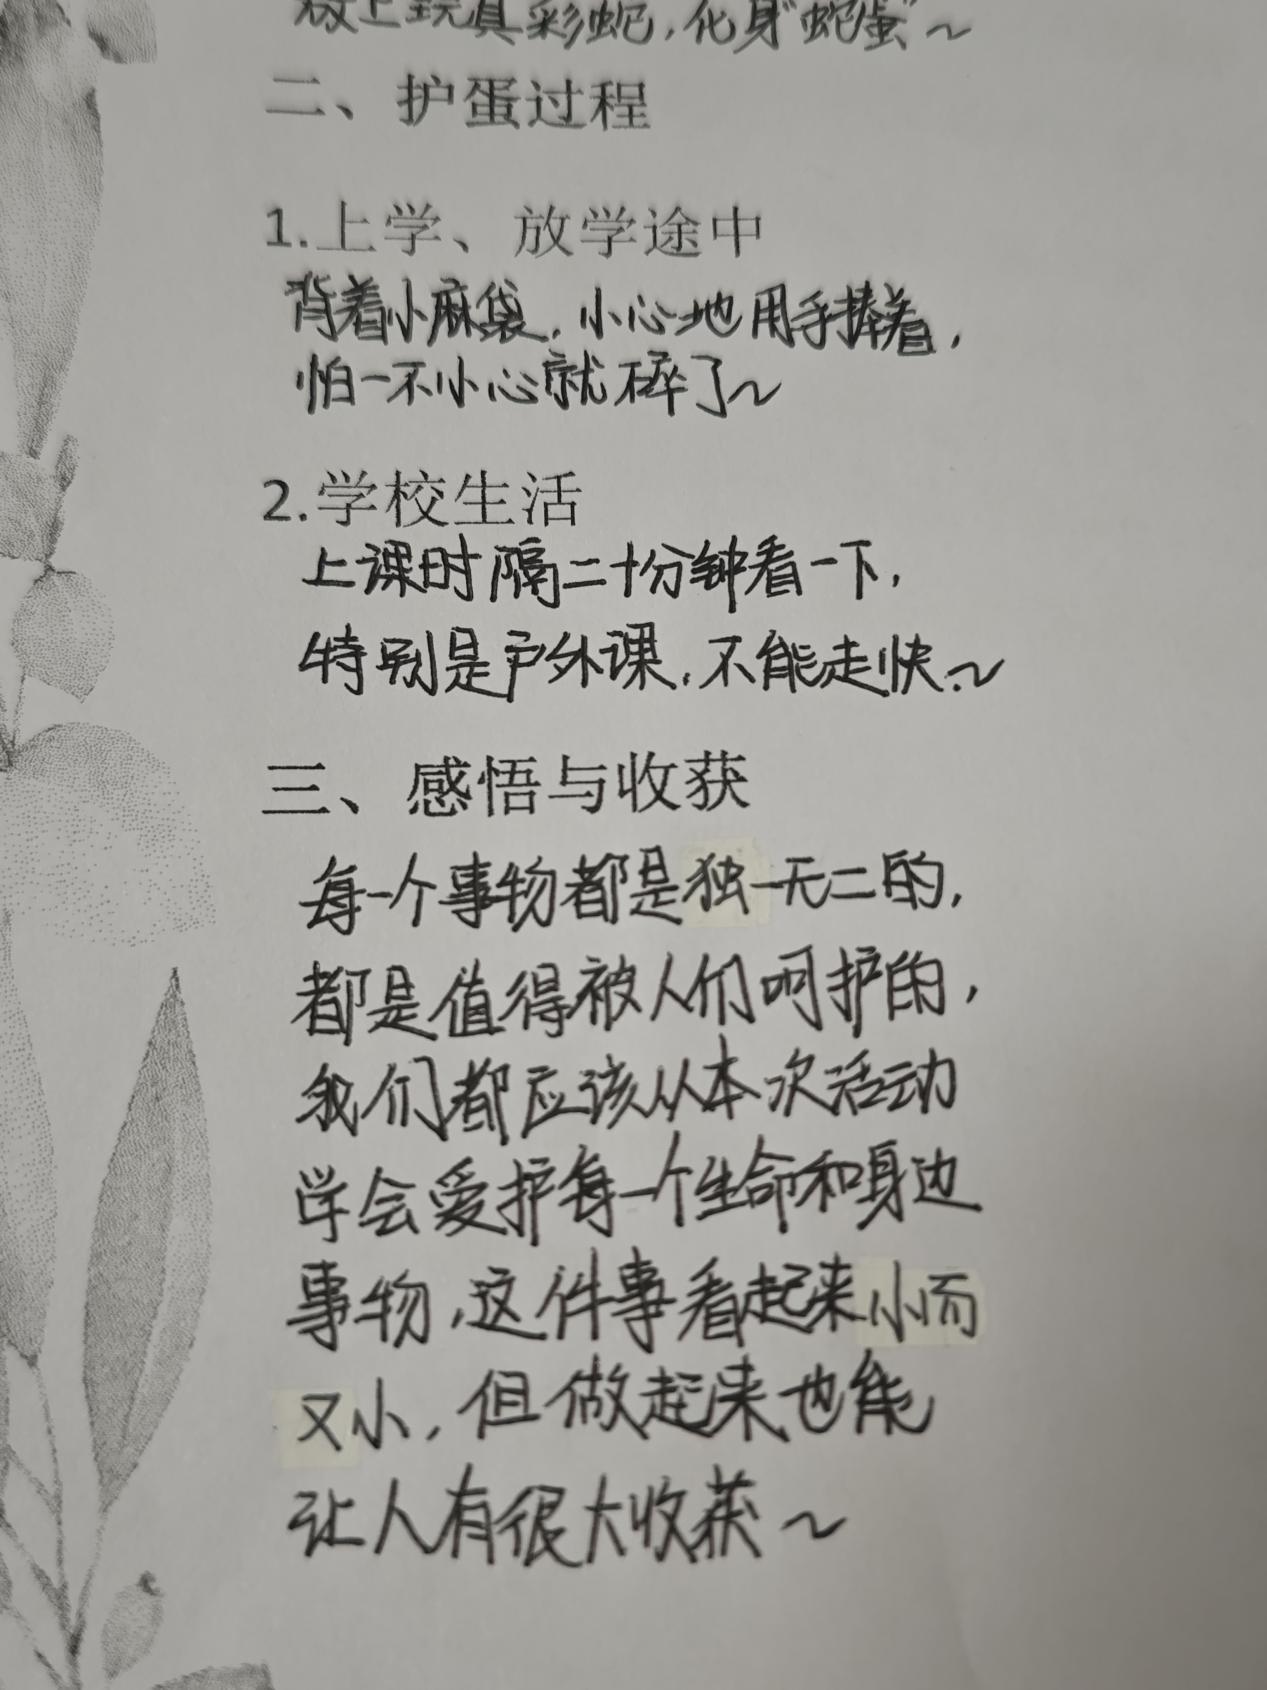 放上玩具彩蛇，化身"蛇蛋"~
二、护蛋过程
1.上学、放学途中
背着小麻袋，小心地用手捧着，
怕一不小心就碎了~
2.学校生活
上课时隔二十分钟看一下，
特别是户外课，不能走快~
三、感悟与收获
每一个事物都是独一无二的，
都是值得被人们呵护的，
我们都应该从本次活动
学会爱护每一个生命和身边
事物，这件事看起来小而
又小，但做起来也能
让人有很大收获~